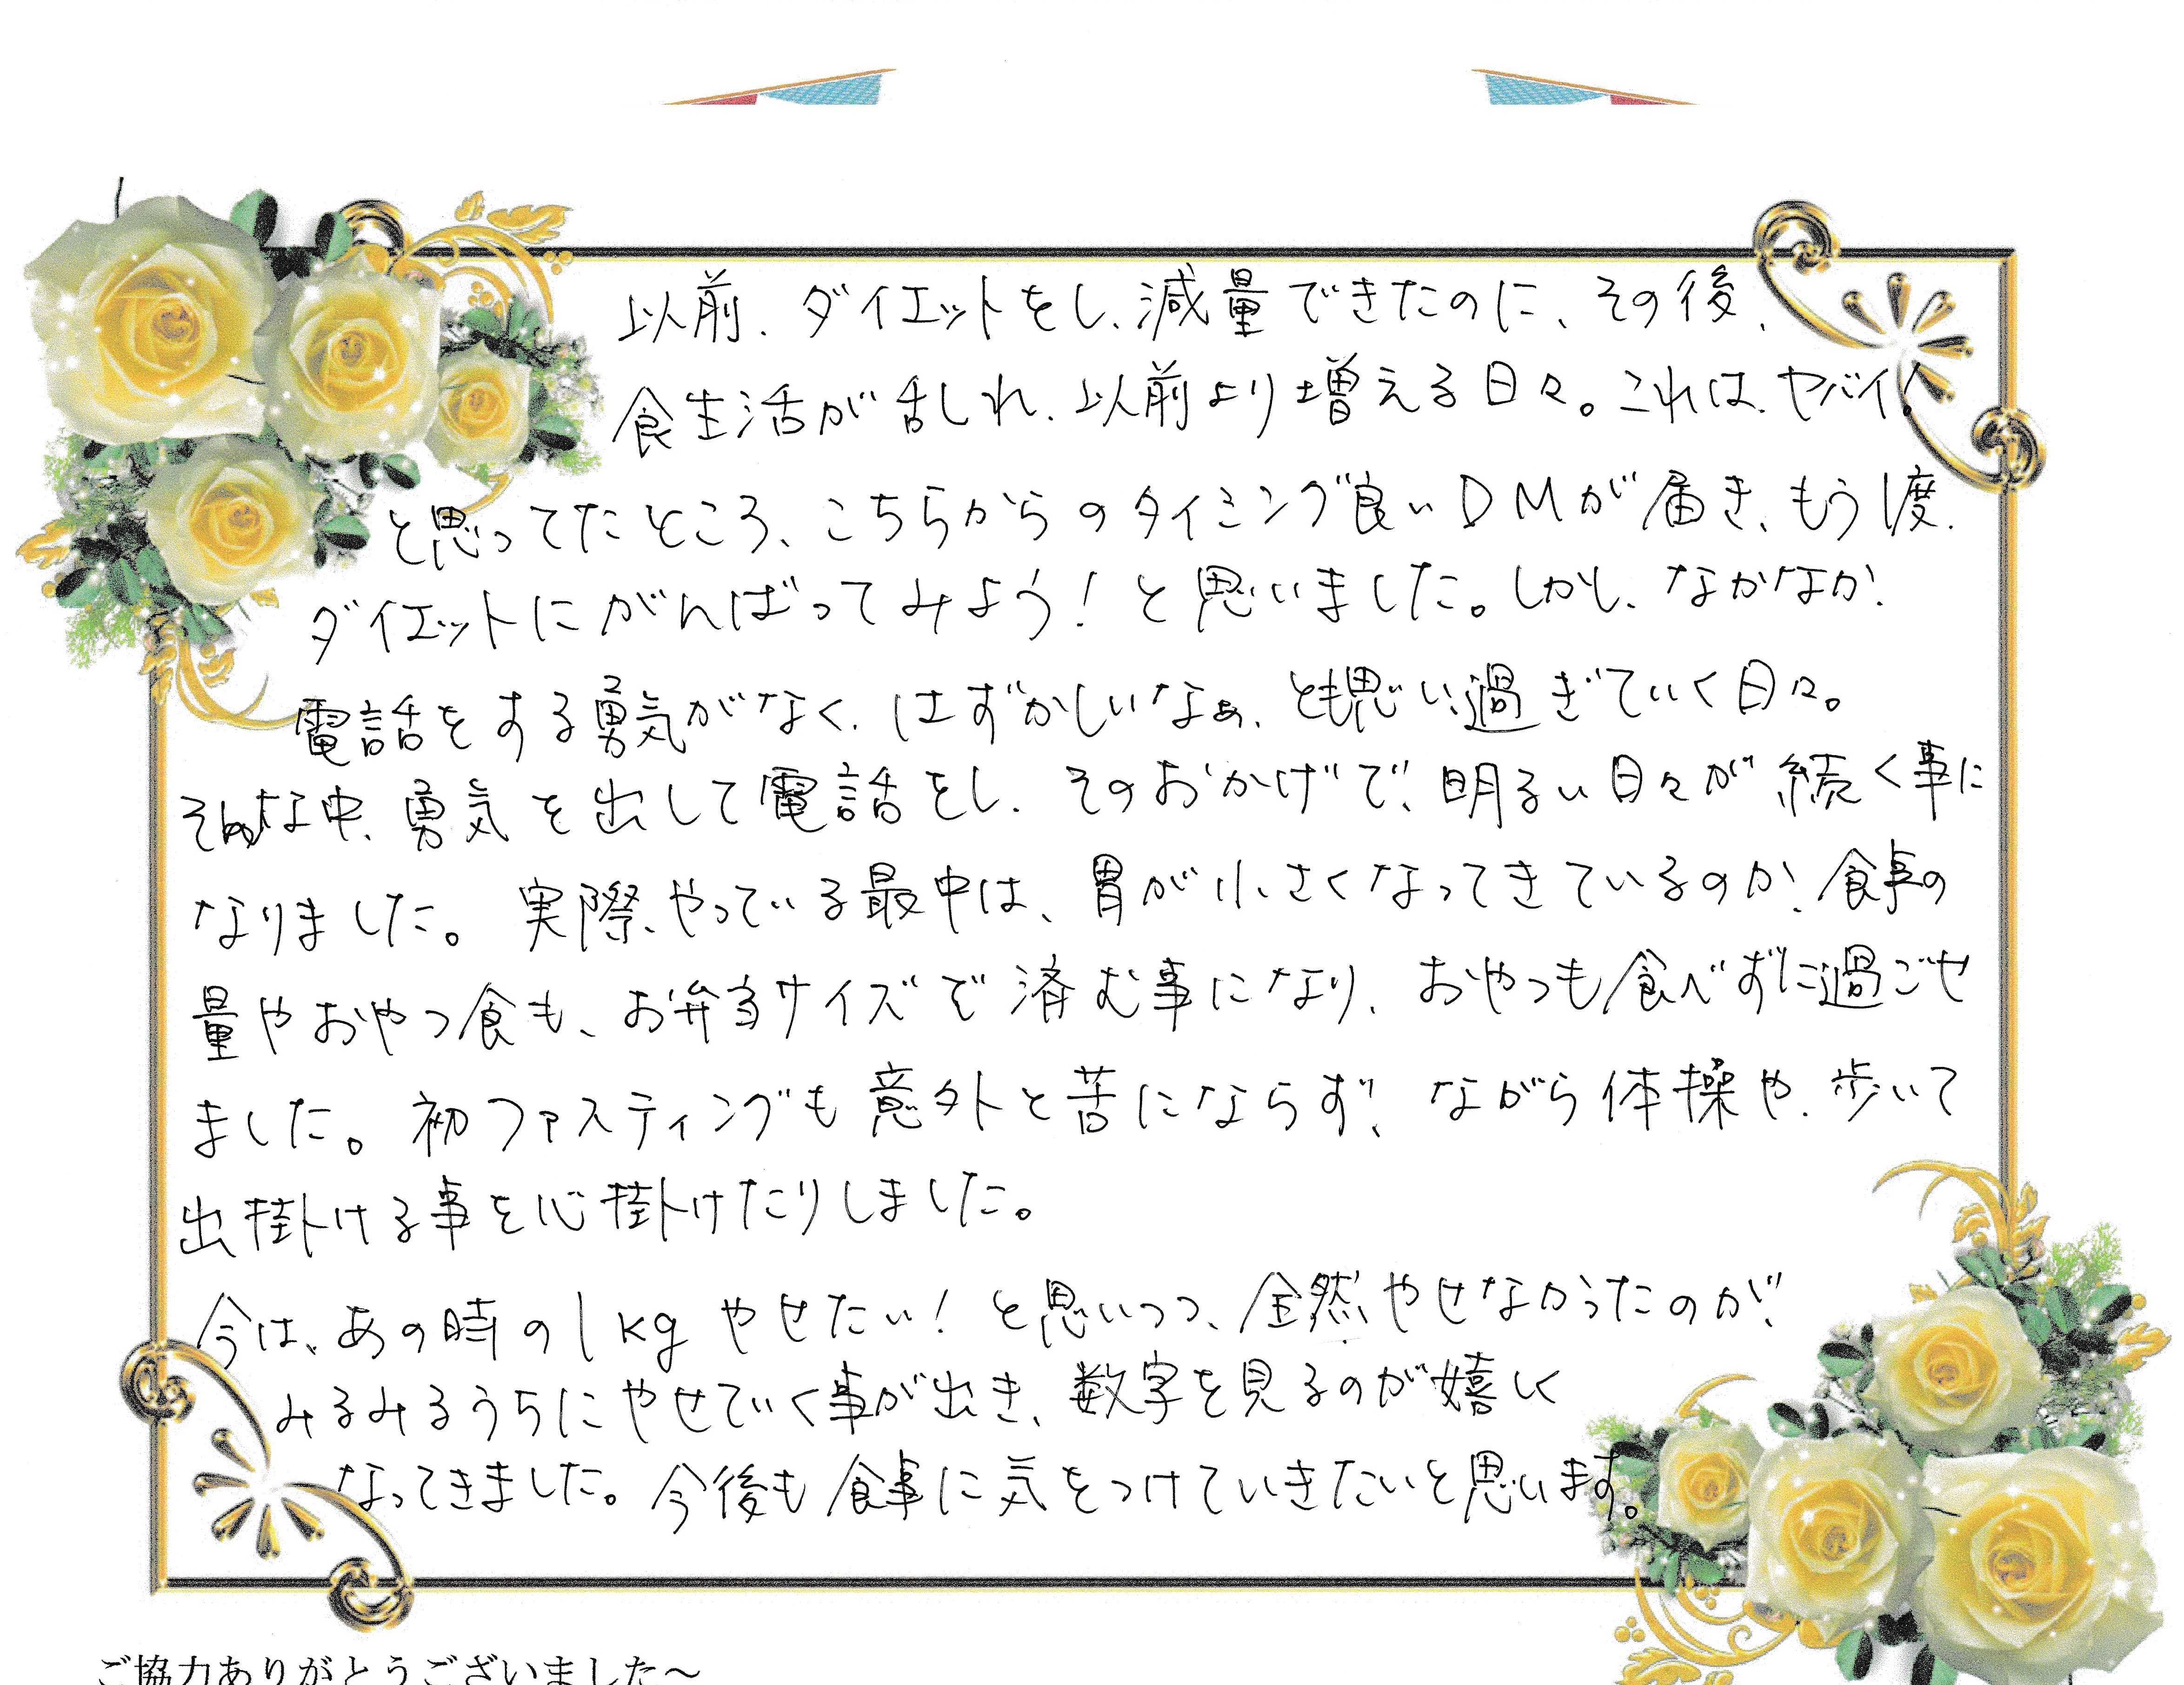 以前、ダイエットをし、減量できたのに、その後、
食生活が乱れ、以前より増える日々。これは、ヤバイ!
と思ってたところ、こちらからのタイミング良いDMが届き、もう1度、
ダイエットにがんばってみよう!と思いました。しかし、なかなか、
電話をする勇気がなく、はずかしいなぁ、とも思い、過ぎていく日々。
そんな中、勇気を出して電話をし、そのおかげで、明るい日々が続く事に
なりました。 実際、やっている最中は、胃が小さくなってきているのか、食事の
量やおやつ食も、お弁当サイズで済む事になり、おやつも食べずに過ごせ
ました。初ファスティングも意外と苦にならず、ながら体操や、歩いて
出掛ける事を心掛けたりしました。
今は、あの時の1kgやせたい!と思いつつ、全然やせなかったのが、
みるみるうちにやせていく事が出き、数字を見るのが嬉しく
なってきました。今後も食事に気をつけていきたいと思います。
ご協力ありがとうございました~